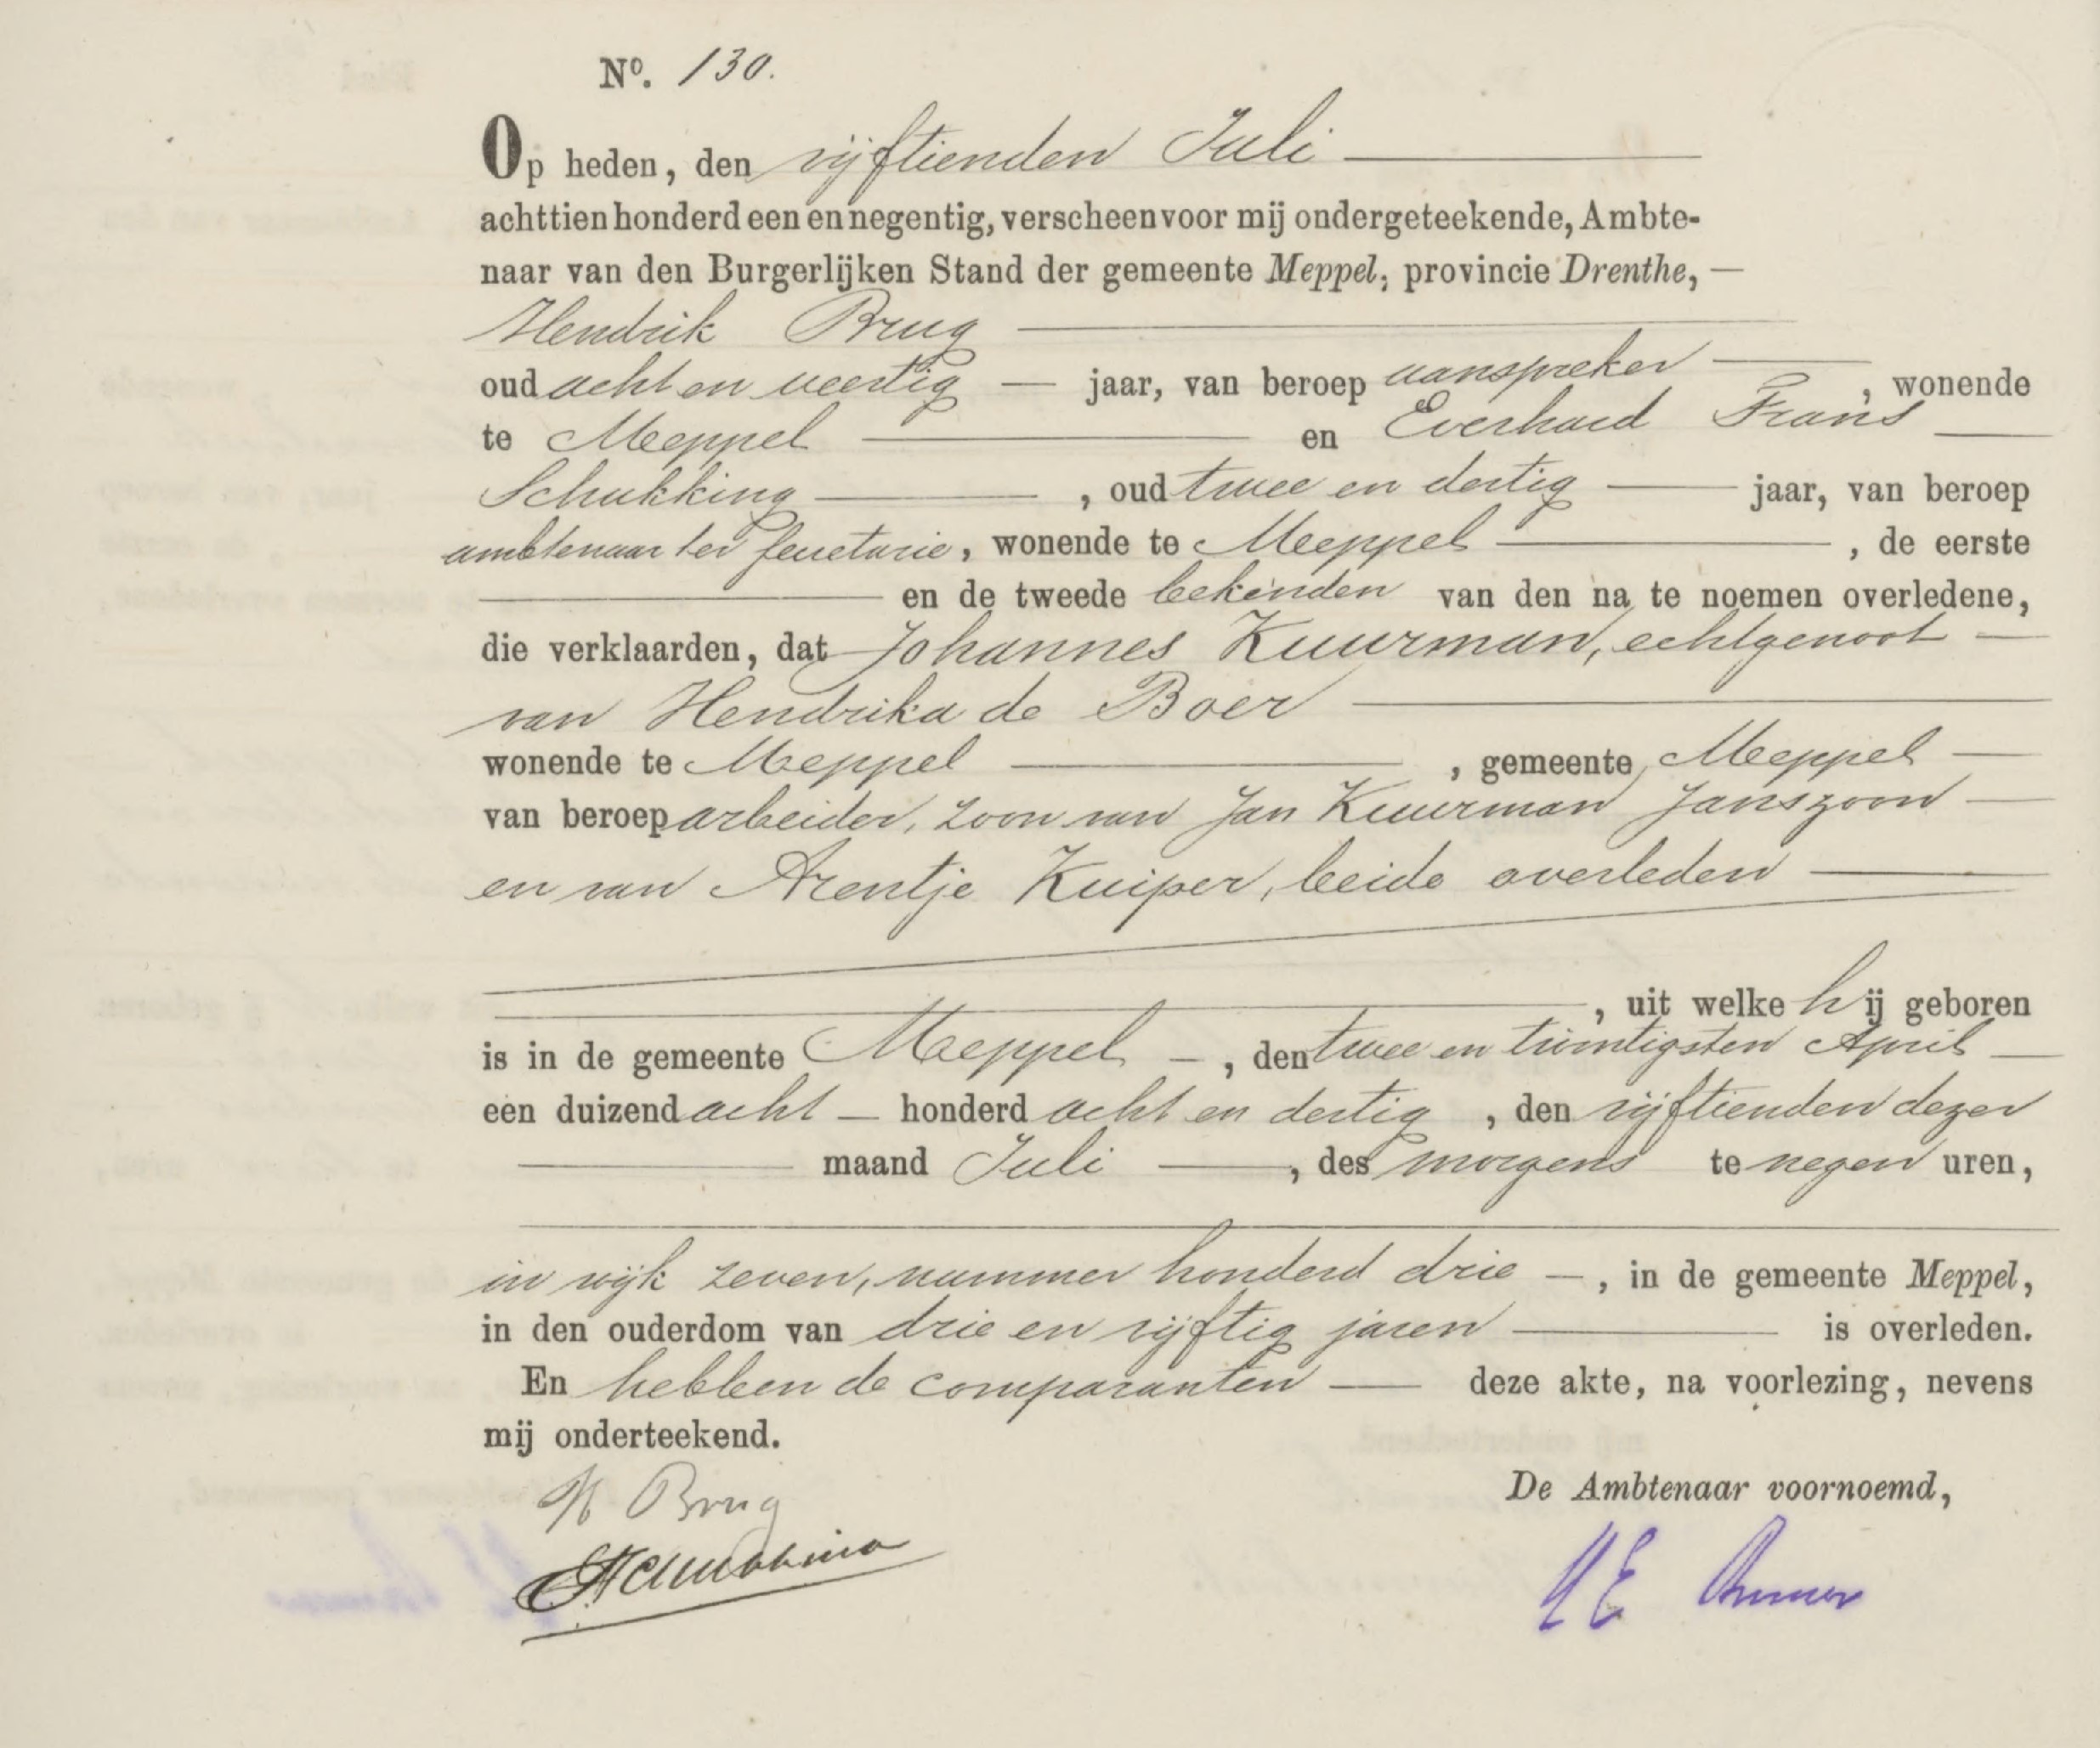 Nº. 130.
Op heden, den vijftienden Juli
achttienhonderd een en negentig, verscheen voor mij ondergeteekende, Ambte-
naar van den Burgerlijken Stand der gemeente Meppel, provincie Drenthe,
Hendrik Brug
oud acht en veertig jaar, van beroep aanspreker, wonende
te Meppel en Everhard Frans
Schukking, oud twee en dertig jaar, van beroep
ambtenaar ter secretarie, wonende te Meppel, de eerste
en de tweede bekenden van den na te noemen overledene,
die verklaarden, dat Johannes Kuurman, echtgenoot
van Hendrika de Boer
wonende te Meppel, gemeente Meppel
van beroep arbeider, zoon van Jan Kuurman Janszoon
en van Arentje Kuiper, beide overleden
, uit welke hij geboren
is in de gemeente Meppel, den twee en twintigsten April
een duizend acht honderd acht en dertig, den vijftienden dezer
maand Juli, des morgens te negen uren,
in wijk zeven, nummer honderd drie, in de gemeente Meppel,
in den ouderdom van drie en vijftig jaren is overleden.
En hebben de comparanten deze akte, na voorlezing, nevens
mij onderteekend.
De Ambtenaar voornoemd,
H Brug